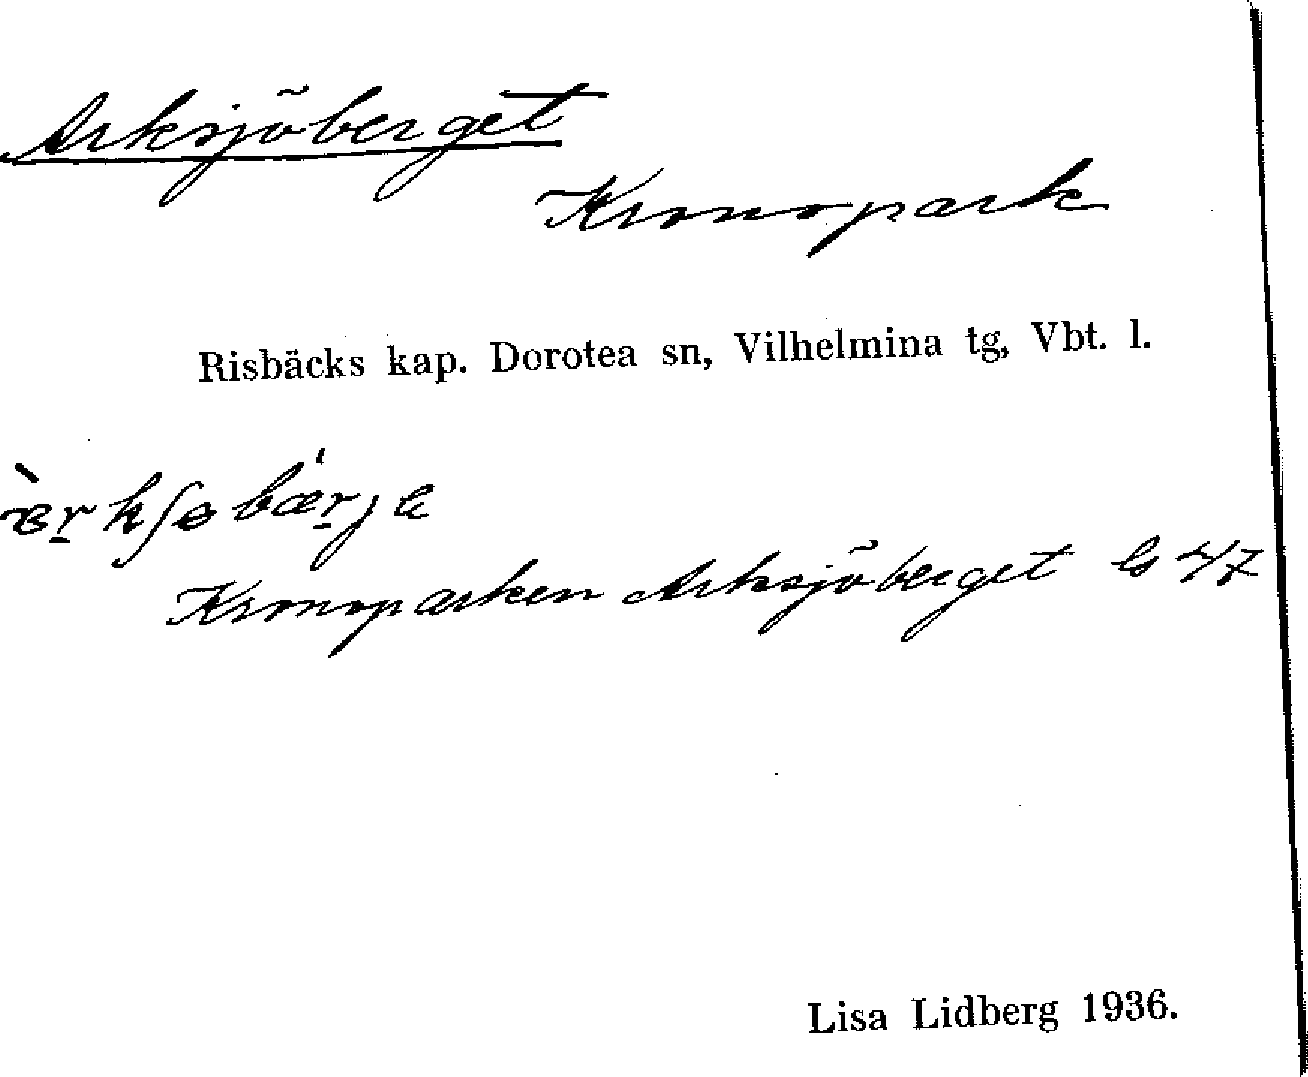 Arksjöberget
Kronopark
Risbäcks kap. Dorotea sn, Vilhelmina tg, Vbt. l.
Kronoparken Arksjöberget b 47
Lisa Lidberg 1936.